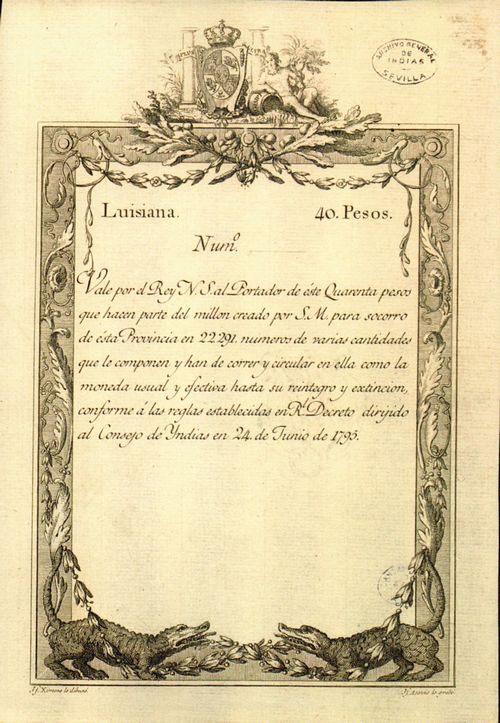 ARCHIVO GENERAL
DE
INDIAS
SEVILLA
Luisiana. 40. Pesos.
Num.º
Vale por el Rey N. S. al Portador de éste Quarenta pesos
que hacen parte del millon creado por S. M. para socorro
de ésta Provincia en 22291. numeros de varias cantidades
que le componen y han de correr y circular en ella como la
moneda usual y efectiva hasta su reintegro y extincion,
conforme á las reglas establecidas en Rl. Decreto dirijido
al Consejo de Yndias en 24. de Junio de 1795.